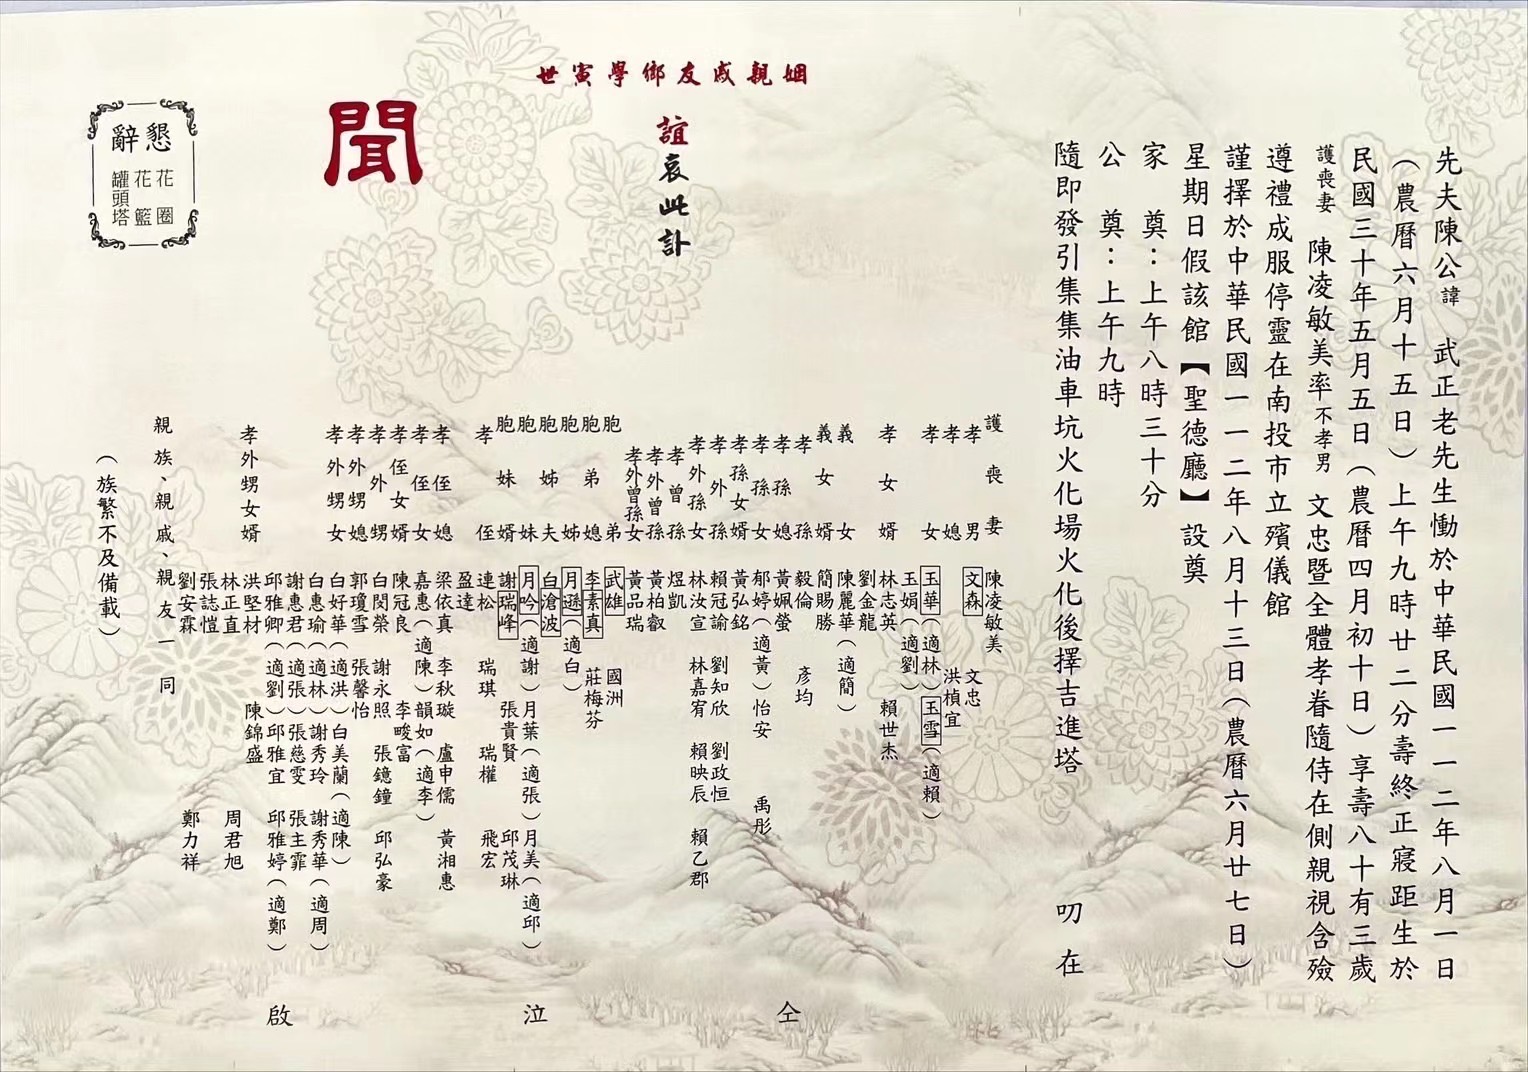 先夫陳公諱 武正老先生慟於中華民國一一二年八月一日
(農曆六月十五日)上午九時廿二分壽終正寢距生於
民國三十年五月五日(農曆四月初十日)享壽八十有三歲
護喪妻 陳凌敏美率不孝男 文忠暨全體孝眷隨侍在側親視含殮
遵禮成服停靈在南投市立殯儀館
謹擇於中華民國一一二年八月十三日(農曆六月廿七日)
星期日假該館【聖德廳】設奠
家 奠:上午八時三十分
公 奠:上午九時
隨即發引集集油車坑火化場火化後擇吉進塔 叨在
姻親戚友鄉學寅世
誼哀此訃
聞
懇辭
花圈
花籃
罐頭塔
護喪妻 陳凌敏美
孝男 文森 文忠
孝媳 洪楨宜
孝女 玉華(適林)玉雪(適賴)
玉娟(適劉)
孝女婿 林志英 賴世杰
劉金龍
義女 陳麗華(適簡)
義女婿 簡賜勝
孝孫 毅倫 彥均
孝孫媳 黃姵螢
孝孫女 郁婷(適黃)怡安 禹彤
孝孫女婿 黃弘銘
孝外孫 賴冠諭 劉知欣 劉政恒
孝外孫女 林汝宣 林嘉宥 賴映辰 賴乙郡
孝曾孫 煜凱
孝外曾孫 黃柏叡
孝外曾孫女 黃品瑞
胞弟 武雄 國洲
胞弟媳 李素真 莊梅芬
胞姊 月遜(適白)
胞姊夫 白滄波
胞妹 月吟(適謝)月葉(適張)月美(適邱)
胞妹婿 謝瑞峰 張貴賢 邱茂琳
孝侄 連松 瑞琪 瑞權 飛宏
盈達
孝侄媳 梁依真 李秋璇 盧申儒 黃湘惠
孝侄女 嘉惠(適陳)韻如(適李)
孝侄女婿 陳冠良 李畯富
孝外甥 白閔榮 謝永照 張鐿鐘 邱弘豪
孝外甥媳 郭瓊雪 張馨怡
孝外甥女 白好華(適洪)白美蘭(適陳)
白惠瑜(適林)謝秀玲 謝秀華(適周)
謝惠君(適張)張慈雯 張主霏
邱雅卿(適劉)邱雅宜 邱雅婷(適鄭)
孝外甥女婿 洪堅材 陳錦盛
林正直 周君旭
張誌愷
劉安霖 鄭力祥
親族、親戚、親友一同
(族繁不及備載)
仝 泣 啟